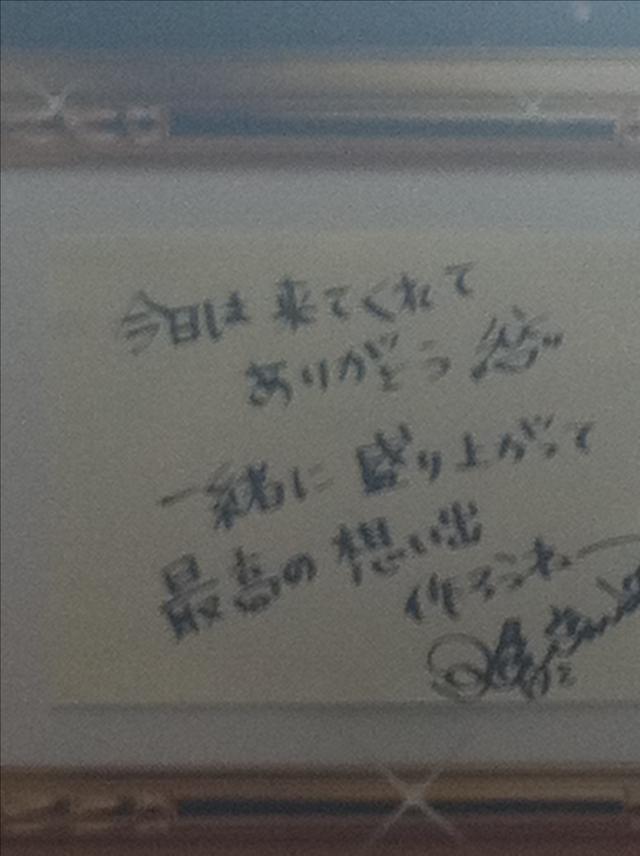 今日は来てくれて
ありがとう
一緒に盛り上がって
最高の想い出
作ろうね